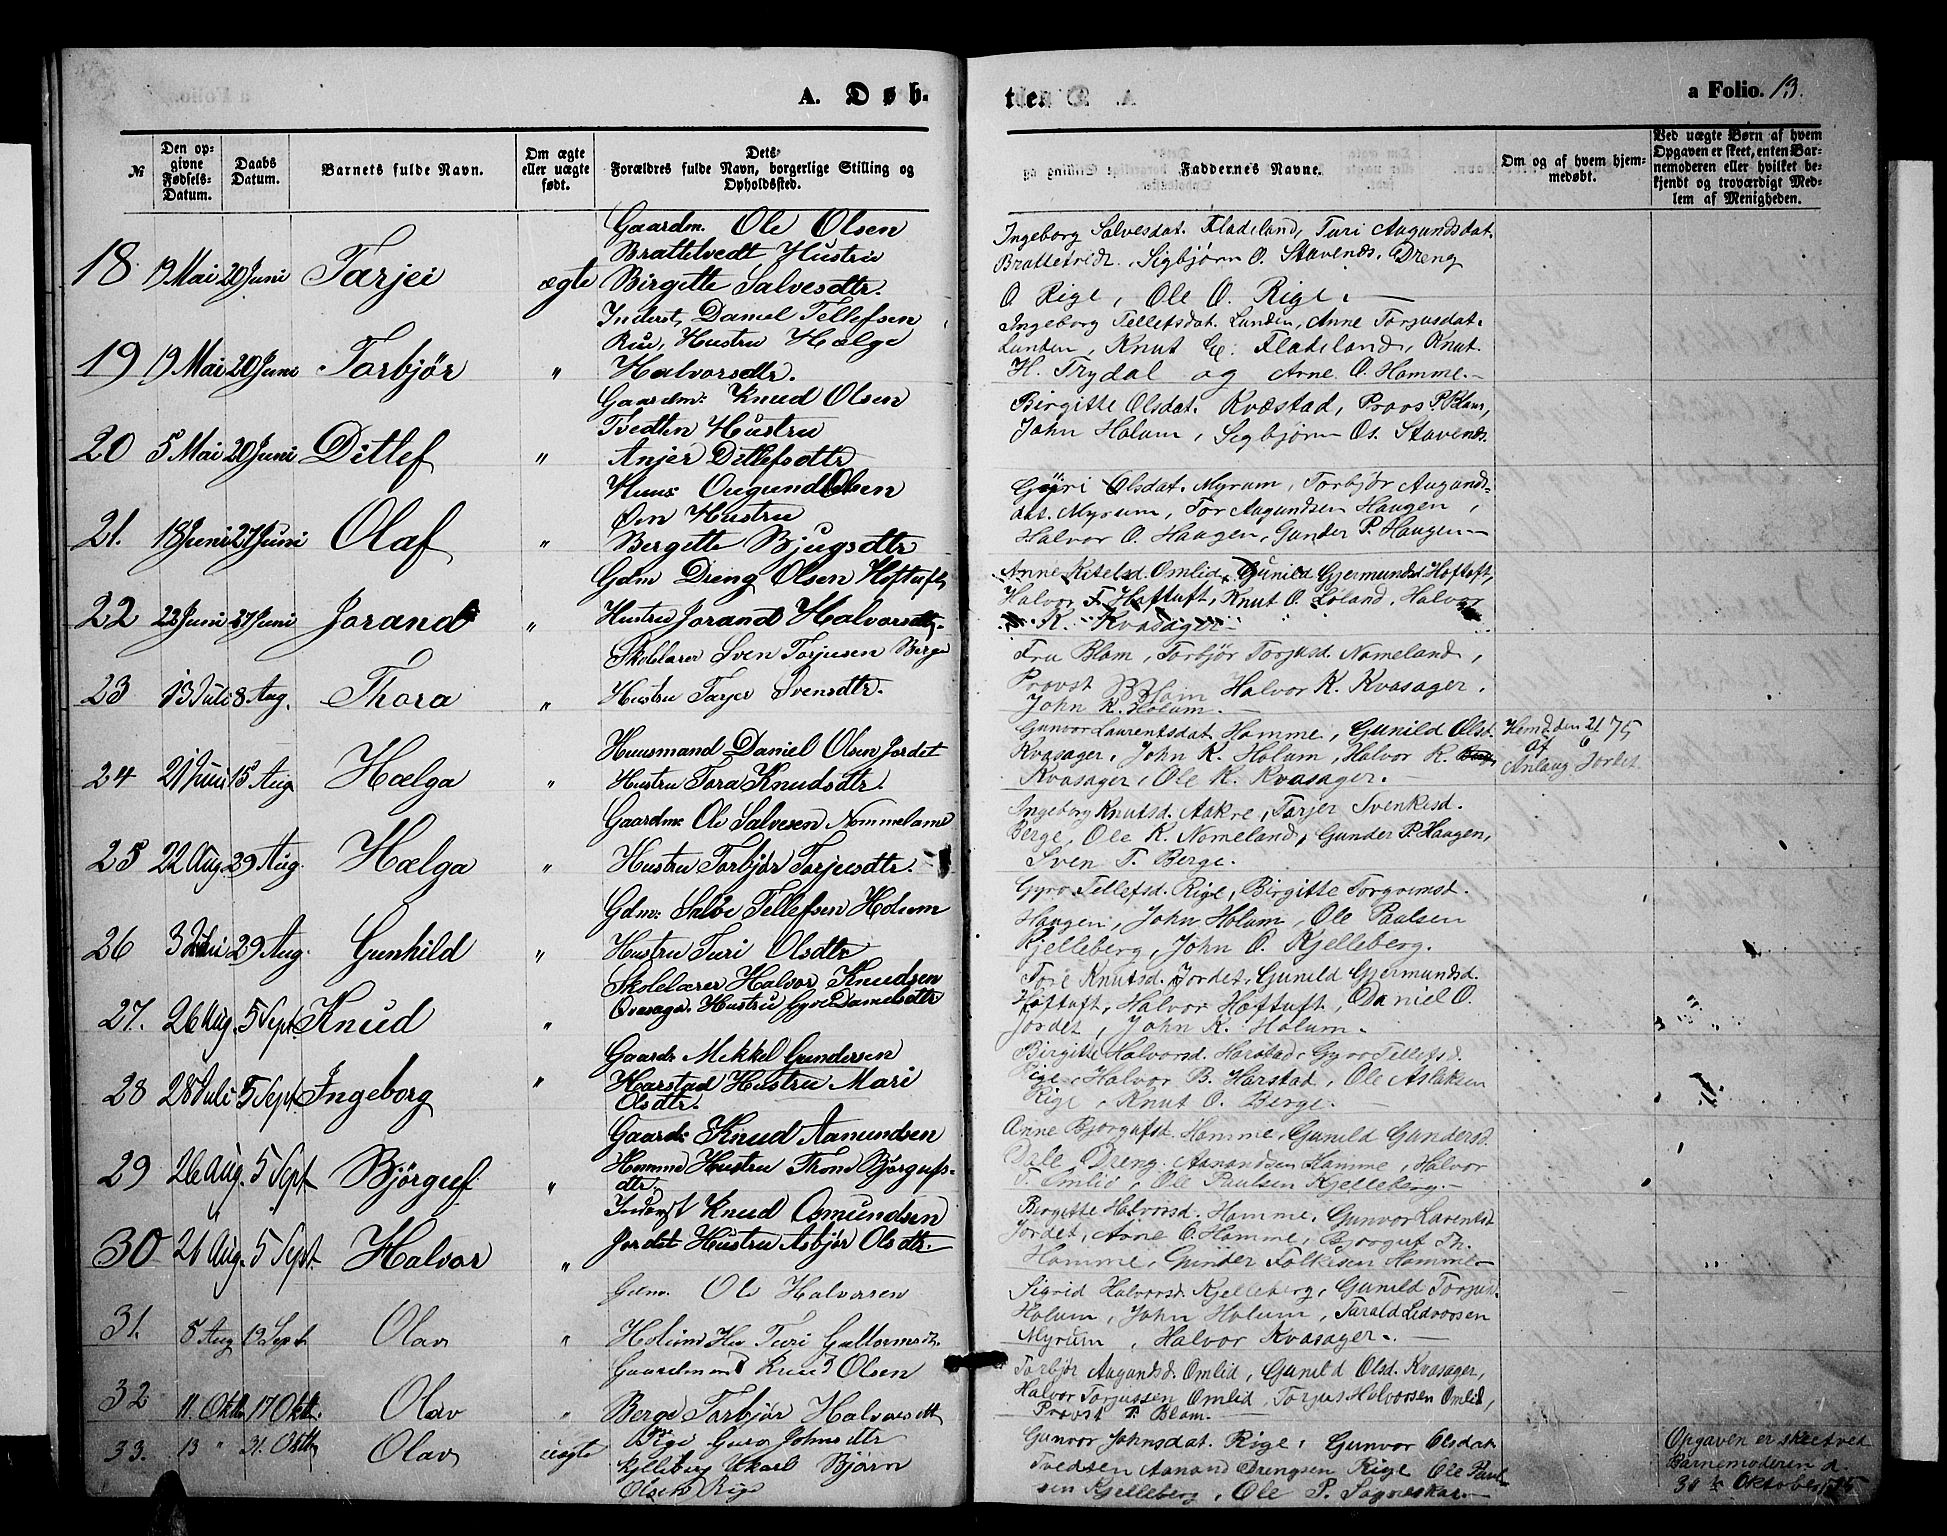 A. Døb-
№
Den op-
givne
Fødsels-
Datum.
Daabs
Datum.
Barnets fulde Navn.
Om ægte
eller uægte
født.
Dets
Forældres fulde Navn, borgerlige Stilling og
Opholdssted.
18. 19 Mai 20 Juni Tarjei ægte
Gaardm. Ole Olsen
Brattelvedt Hustru
Birgitte Salvesdtr.
19 19 Mai 20 Juni Torbjør "
Inderst, Daniel Tellefsen
Hustru Hælge
Halvorsdtr.
20 5 Mai 20 Juni Ditlef "
Gaardm: Knud Olsen
Tvedten Hustru
Anjer Ditlefsdtr
21. 18 Juni 27 Juni Olaf "
Huus: Ougund Olsen
Øen Hustru
Bergette Bjugsdtr
22 22 Juni 27 Juni Jorand "
Gdm Dreng Olsen Hoftuft,
Hustru Jorand Halvorsdtr.
23 13 Juli 8 Aug. Thora "
Skolelærer Sven Torjusen Berge
Hustru Tarjer Svensdtr.
24 21 Juni 15 Aug Hælga "
Huusmand Daniel Olsen Jordet
Hustru Tora Knudsdtr.
25 22 Aug. 29 Aug Hælga "
Gaardm: Ole Salvesen Nommeland
Hustru Torbjør Tarjeisdtr.
26 3 Juli 29 Aug. Gunhild "
Gdm: Salve Tellefsen Holum
Hustru Turi Olsdtr
27. 26 Aug. 5 Sept. Knud "
Skolelærer Halvor Knudsen
Qvasager. Hustru Gyro Danielsdtr
28 28 Juli 5 Sept Ingeborg "
Gaard: Mekkel Gundersen
Harstad Hustru Mari
Olsdtr.
29 26 Aug. 5 Sept Bjørguf "
Gaard: Knud Aamundsen
Homme Hustru Thone Bjørgufs-
dtr.
30 21 Aug. 5 Sept. Halvor "
Inderst Knud Osmundsen
Jordet Hustru Asbjør Olsdtr.
31. 8 Aug 19 Sept. Olav "
Gdm. Ole Halvorsen
Holum Hu Turi Guttormsdtr
32 11. Oktb 17 Oktb. Olav "
Gaardmand Knud Olsen
Berge Torbjør Halvorsdtt
33. 13 " 31. Oktb Olav uægte
Pige Guro Johnsdtr
Kjelleberg Ukarl Bjørn
Olsen Rige
tden
a Folio. 13.
Faddernes Navne.
Om og af hvem hjem-
medøbt.
Ved uægte Børn af hvem
Opgaven er skeet, enten Bar-
nemoderen eller hvilket be-
kjendt og troværdigt Med-
lem af Menigheden.
Ingeborg Salvesdat. Fladeland, Turi Augundsdat.
Brattetvedt, Sigbjørn O. Stavenes, Dreng
O. Rige, Ole O. Rige.
Ingeborg Tellefsdat. Lunden, Anne Torjusdat.
Lunden, Knut G. Fladeland, Knut.
H. Trydal og Arne O. Homme.
Birgitte Olsdat. Kvæstad, Provs P. Blom,
John Holum, Sigbjørn Os. Stavenes.
Gyri Olsdat. Myrum, Torbjør Augunds-
dat. Myrum, Tor Augundsen Haugen,
Halvor O. Haugen, Gunder P. Haugen
Anne Kitelsd. Omlid, Gunild Gjermundsd Hoftuft,
Halvor F. Hoftuft, Knut O. Løland, Halvor
K. Kvasager
Fru Blom, Torbjør Torjusd. Nomeland,
Provst Blom Halvor K. Kvasager.
John K. Holum.
Gunvor Laurentsdat. Homme, Gunild Olsd.
Kvasager, John K. Holum, Halvor K.
Kvasager, Ole K. Kvasager.
Hjemd. den 21/6 75
af
Anlaug Jordet.
Ingeberg Knutsd. Aakre, Tarjer Svenkesd.
Berge, Ole K. Nomeland, Gunder P. Haugen,
Sven T. Berge.
Gyro Tellefsd. Rige, Birgitte Torgrimsd.
Haugen, John Holum, Ole Paulsen
Kjelleberg, John O. Kjelleberg.
Tore Knutsd. Jordet, Gunild Gjermundsd.
Hoftuft, Halvor Hoftuft, Daniel O.
Jordet, John K. Holum.
Birgitte Halvorsd. Harstad, Gyro Tellefsd.
Rige, Halvor B. Harstad, Ole Aslaksen
Rige, Knut O. Berge.
Anne Bjørgufsd. Homme, Gunild Gundersd.
Dale Dreng Aanundsen Homme, Halvor
T. Omlid, Ole Paulsen Kjelleberg.
Birgitte Halvorsd. Homme, Gunvor Larentsd
Jordet, Arne O. Homme, Bjørguf Th.
Homme, Gunder Folkesen Homme
Sigrid Halvorsd. Kjelleberg, Gunild Torjusd.
Holum, John Holum, Tarald Lidvorsen
Myrum, Halvor Kvasager.
Torbjør Augundsd. Omlid, Gunild Olsd. Kvasager,
Halvor Torjussen Omlid, Torjus Halvorsen Omlid,
Provst P. Blom.
Gunvor Johnsdat. Rige, Gunvor Olsdat.
Tvedten Aanund Drengsen Rige Ole Paul-
sen Kjelleberg, Ole P. Sagneskar.
Opgaven er skeet ved
Barnemoderen d.
31te Oktober 75